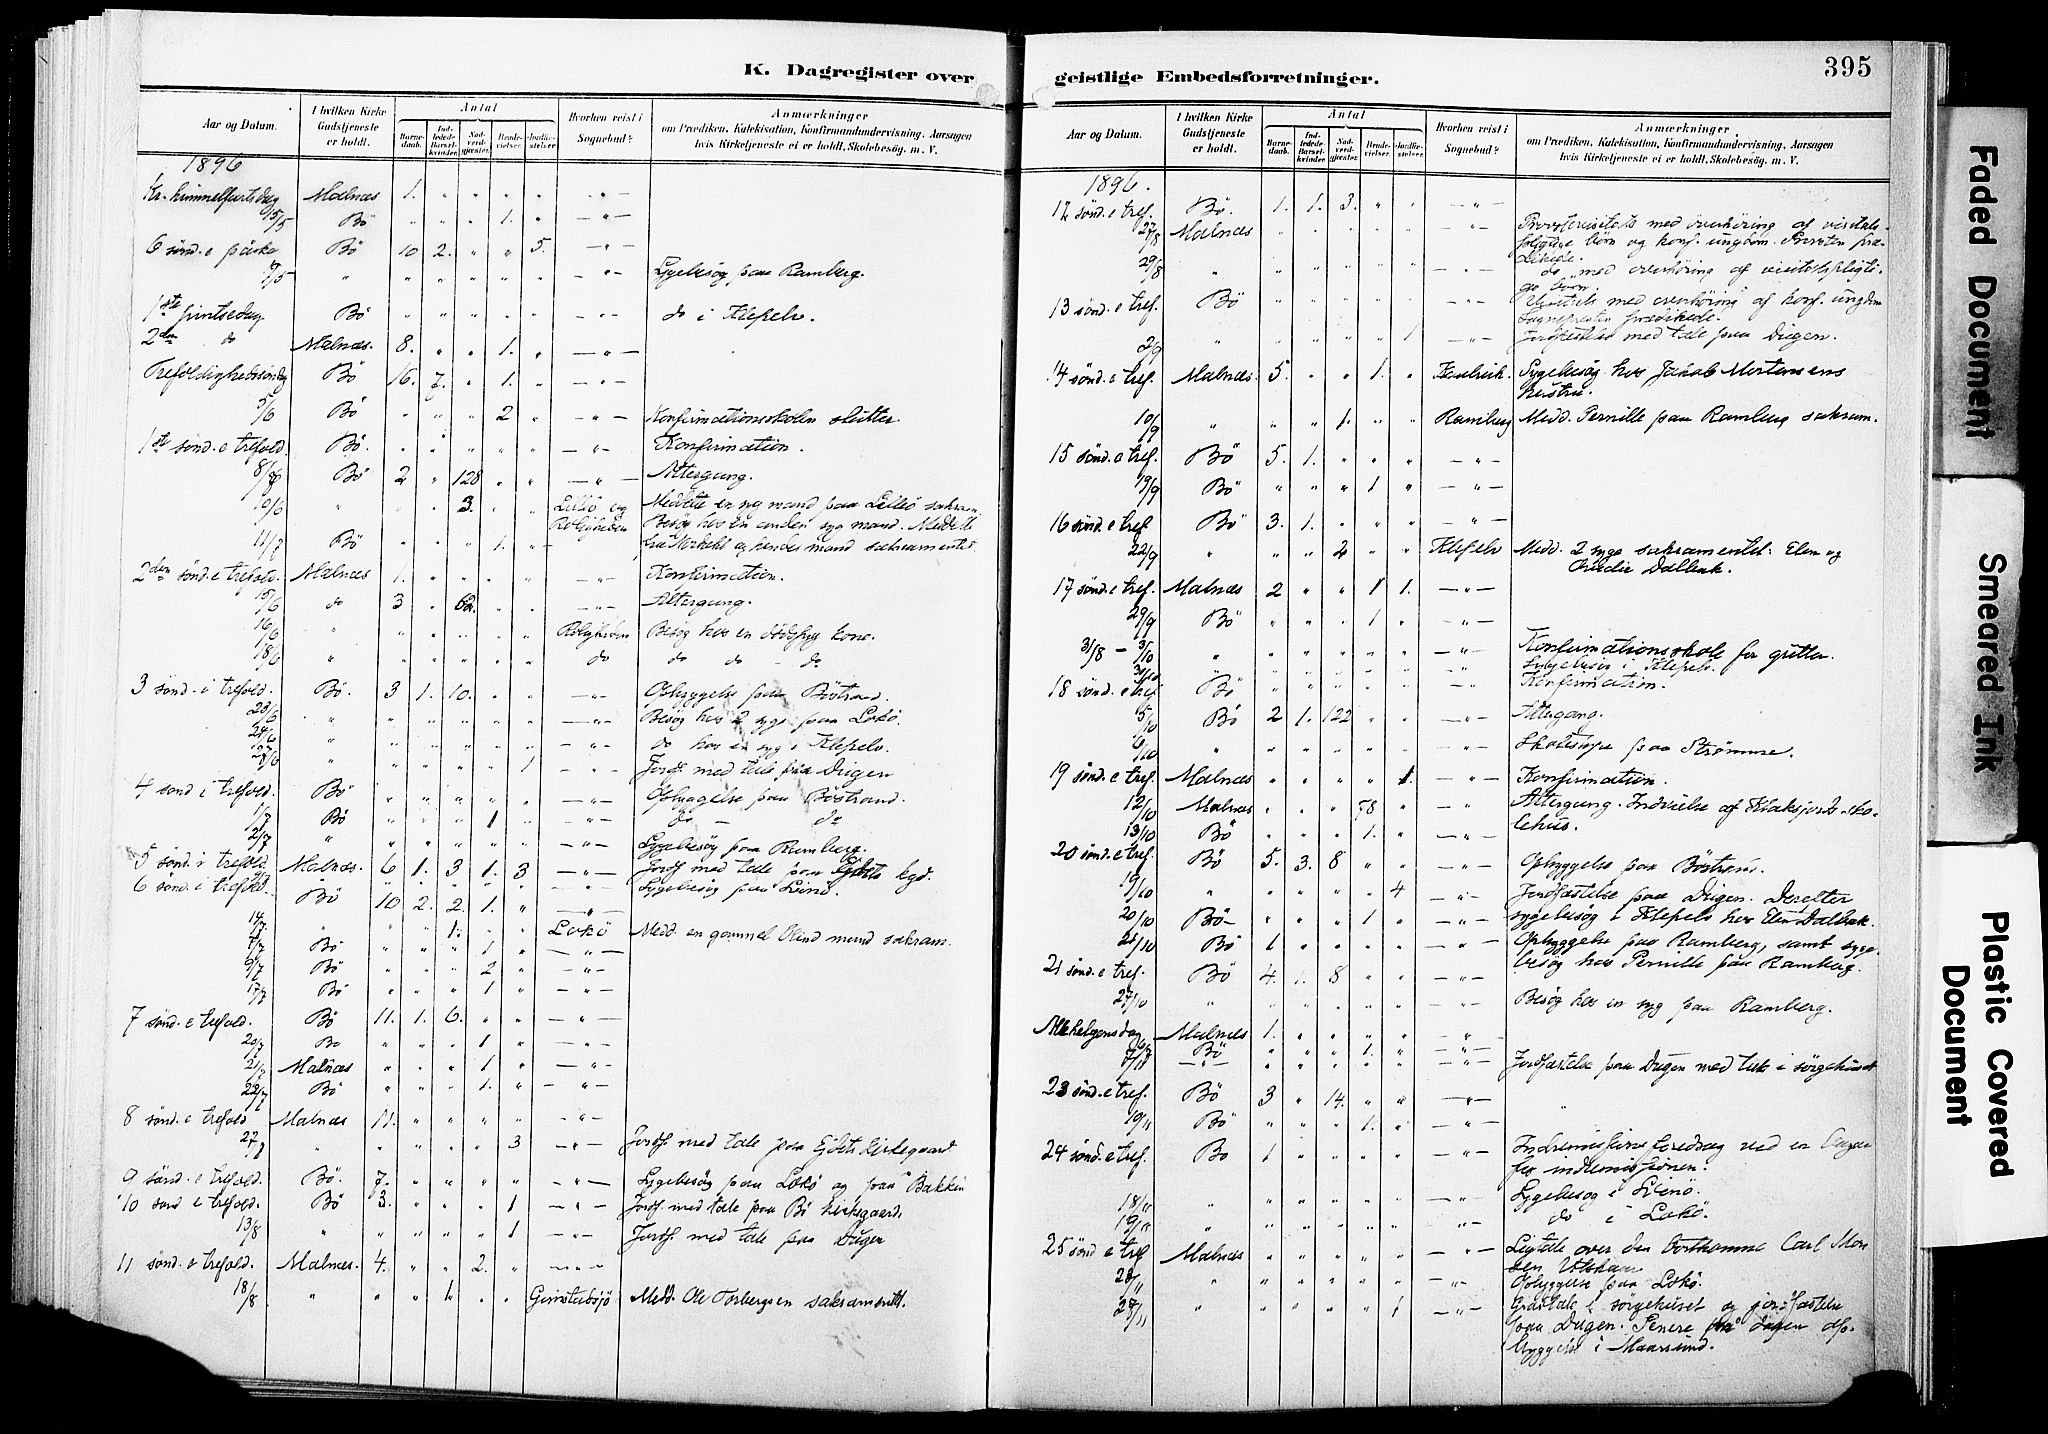 K. Dagregister over
Aar og Datum.
I hvilken Kirke Gudstjeneste er holdt.
Antal
Barnedaab.
Indledede Barselkvinder.
Nadverdgjæster.
Brudevielser.
Jordfæstelser.
Hvorhen reist i Sognebud?
Anmærkninger
om Prædiken, Katekisation, Konfirmandundervisning, Aarsagen
hvis Kirketjeneste ei er holdt, Skolebesøg. m. V.
1896
Kr. himmelfartsdag Malnæs 1. " " " " — " —
15/5 Bö " " " 1. " — " —
6 sönd. e påske Bö 10 2. " " 5. — " —
" " " " " " — " — Sygebesög paa Ramberg.
1ste pintsedag Bö " " " " " — " — do i Klepelv.
2den do Malnæs. 8. " " 1. " — " —
Trefoldighedssöndag Bö 16. 7. " 1. " — " —
5/6 Bö " " " 2 " — " — Konfirmationsskolen slutter.
1ste sönd. e trefold. Bö. " " " " " — " — Konfirmation.
Bö 2 " 128 " " — " — Altergang.
10/6 " " " 3. " " Lillö og Roligheden Meddelte en syg mand paa Lillö sakram.
Besög hos en anden syg mand. Meddelte
Bö " " " 1. " — " — hendes mand sakramentet
2den sönd. e trefold. Malnæs 1. " " " " — " — Konfirmation.
15/6 do 3 " 62. " " — " — Altergang.
16/6 " " " " " " Roligheden Besög hos en dödssyg kone.
18/6 " " " " " " do do do - do
3 sönd. i trefold. Bö. 3 1. 10. " " — " — Opbyggelse paa Böstrand.
23/6 " " " " " " — " — Besög hos 2 syge paa Lokö.
24/6 " " " " " " — " — do hos en syg i Klepelv.
" " " " " 1 — " — Jordf. med tale paa Dugen
4 sönd i trefold. Bö " " " " " — " — Opbyggelse paa Böstrand.
1/7 Bö " " " 1 " — " — do — do
2/7 " " " " " " — " — Sygebesög paa Ramberg.
5 sönd. i trefold Malnæs. 6 1. 3 1. 3 — " — Jordf med tale paa kgd.
6 sönd. i trefold. Bö 10 2. 2. 1. " — " — Sygebesög paa
14/7 " " " 1. " " Lokö Medd. en gammel blind mand sakram.
7/7 Bö " " " 1 " — " —
9/7 Bö " " " 2 " — " —
17/7 Bö " " " 1 " — " —
7 sönd. e trefold. Bö 11. 1. 6. " " — " —
20/7 Bö " " " 1 " — " —
21/7 Malnæs " " " 1 " — " —
22/7 Bö " " " 1. " — " —
8 sönd. e trefold Malnæs 11. " " " " — " —
27/7 " " " " " 3 — " — Jordf. med tale paa kirkegaard
9 sönd. e trefold. Bö. 7. " " " " — " — Sygebesög paa Lokö og paa Bakken
10 sönd e trefold. Bö 3. " " " 1 — " — Jordf. med tale paa Bö kirkegaard.
13/8 " " " " " 1 — " — Jordf med tale paa Dugen
11 sönd. e trefold. Malnæs. 4. " " 2. " — " —
18/8 " " " 1. " " Grimstadsjö Medd. Ole Torbergsen sakramentet.
geistlige Embedsforretninger.
395
Aar og Datum.
I hvilken Kirke Gudstjeneste er holdt.
Antal
Barnedaab.
Indledede Barselkvinder.
Nadverdgjæster.
Brudevielser.
Jordfæstelser.
Hvorhen reist i Sognebud?
Anmærkninger
om Prædiken, Katekisation, Konfirmandundervisning, Aarsagen
hvis Kirketjeneste ei er holdt, Skolebesøg. m. V.
1896.
12 sönd. e tref. Bö. 1. 1. 3. " " — " —
27/8 Malnæs " " " " " — " — Provstevisitats med overhöring af visitats-
pligtige börn og konf. ungdom. Provsten præ-
dikede.
29/8 " " " " " " — " — do med overhöring af visitatspligti-
ge börn.
13 sönd. e tref. Bö " " " " " — " — Visitats med overhöring af konf. ungdom
Sognepresten prædikede.
2/9 " " " " " 1 — " — Jordfæstelse med tale paa Dugen.
14 sönd. e tref. Malnæs. 5. " " 1. " Sygebesög hos Jakob Mortensens
hustru.
10/9 " " " 1. " " Ramberg Medd. Pernille paa Ramberg sakram.
15 sönd. e tref. Bö 5. 1. " " " — " —
Bö " " " 1 " — " —
16 sönd. e tref. Bö 3. 1. " " " — " —
22/9 " " " 2 " " Klepelv Medd. 2 syge sakramentet: Elen og
Dalbak.
17 sönd. e tref. Malnæs 2 " " 1 1. — " —
29/9 Bö " " " 1 " — " —
31/8 — 3/10 " " " " " " — " — Konfirmationsskole for gutter.
" " " " " " — " — Sygebesög i Klepelv.
18 sönd. e tref. Bö " " " " " — " — Konfirmation.
5/10 Bö 2 1. 122 " " — " — Altergang.
6/10 " " " " " " — " — paa Strömme.
19 sönd. e tref. Malnæs " " " " 1. — " — Konfirmation.
12/10 Malnæs " " 58 " — " — Altergang. Indvielse af sko-
lehus.
13/10 Bö " " " 1. " — " —
20 sönd. e tref. Bö 5. 3. 8 " " — " — Opbyggelse paa Böstrand.
19/10 " " " " " 4 — " — Jordfæstelse paa Dugen. Derefter
20/10 Bö " " " 1 " — " — sygebesög i Klepelv hos Elen Dalbak.
21/10 Bö 1 " " " " — " — Opbyggelse paa Ramberg, samt syge-
besög hos Pernille paa Ramberg.
21 sönd. e tref. Bö 4. 1. 8 " " — " —
27/10 " " " " " " — " — Besög hos en syg paa Ramberg.
Allehelgensdag Malnæs 1. " " " " "
Bö " " " 1. " — " —
— " — " " " " " — " — Jordfæstelse paa Dugen med tale i sörgehuset
23 sönd. e tref. Bö 3 " 14. " " — " —
Bö " " " 1. " — " —
24 sönd. e tref. Bö 1 " " " " — " — Indremissionsforedrag ved en
for indremissionen.
18/11 " " " " " " — " — Sygebesög i
19/11 " " " " " " — " — do i Lokö.
25 sönd e tref Malnæs " " " " " — " — Ligtale over den bortkomne Carl
" " " " " " — " — Opbyggelse paa Lokö.
" " " " " 1 — " — Gravtale i sörgehuset og jordfæstelse
paa Dugen. Senere paa dagen op-
byggelse i Maarsund.
Faded Document
Smeared Ink
Plastic Covered Document